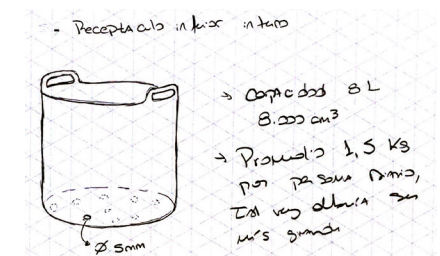 - Receptaculo inferior interno
→ Capacidad 8 L
8.000 cm³
→ Promedio 1,5 Kg
por persona diario,
Tal vez deberia ser
más grande
Ø 5mm